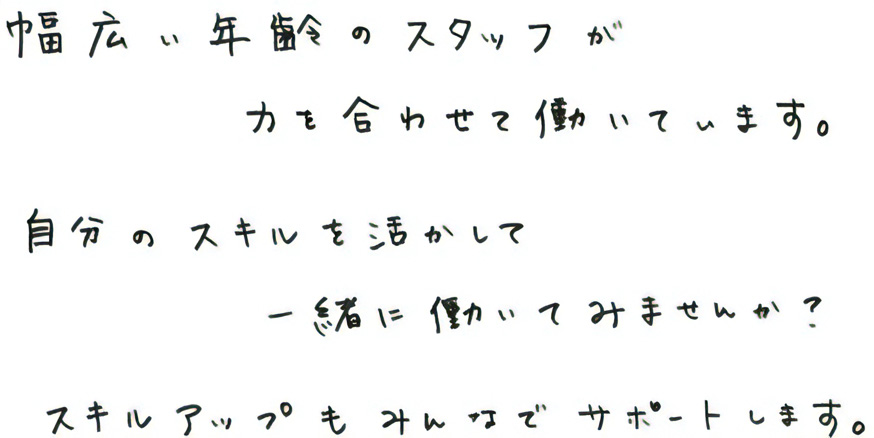 幅広い年齢のスタッフが
力を合わせて働いています。
自分のスキルを活かして
一緒に働いてみませんか？
スキルアップもみんなでサポートします。